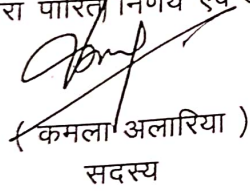 रा पारित निर्णय एवं
( कमला अलारिया )
सदस्य